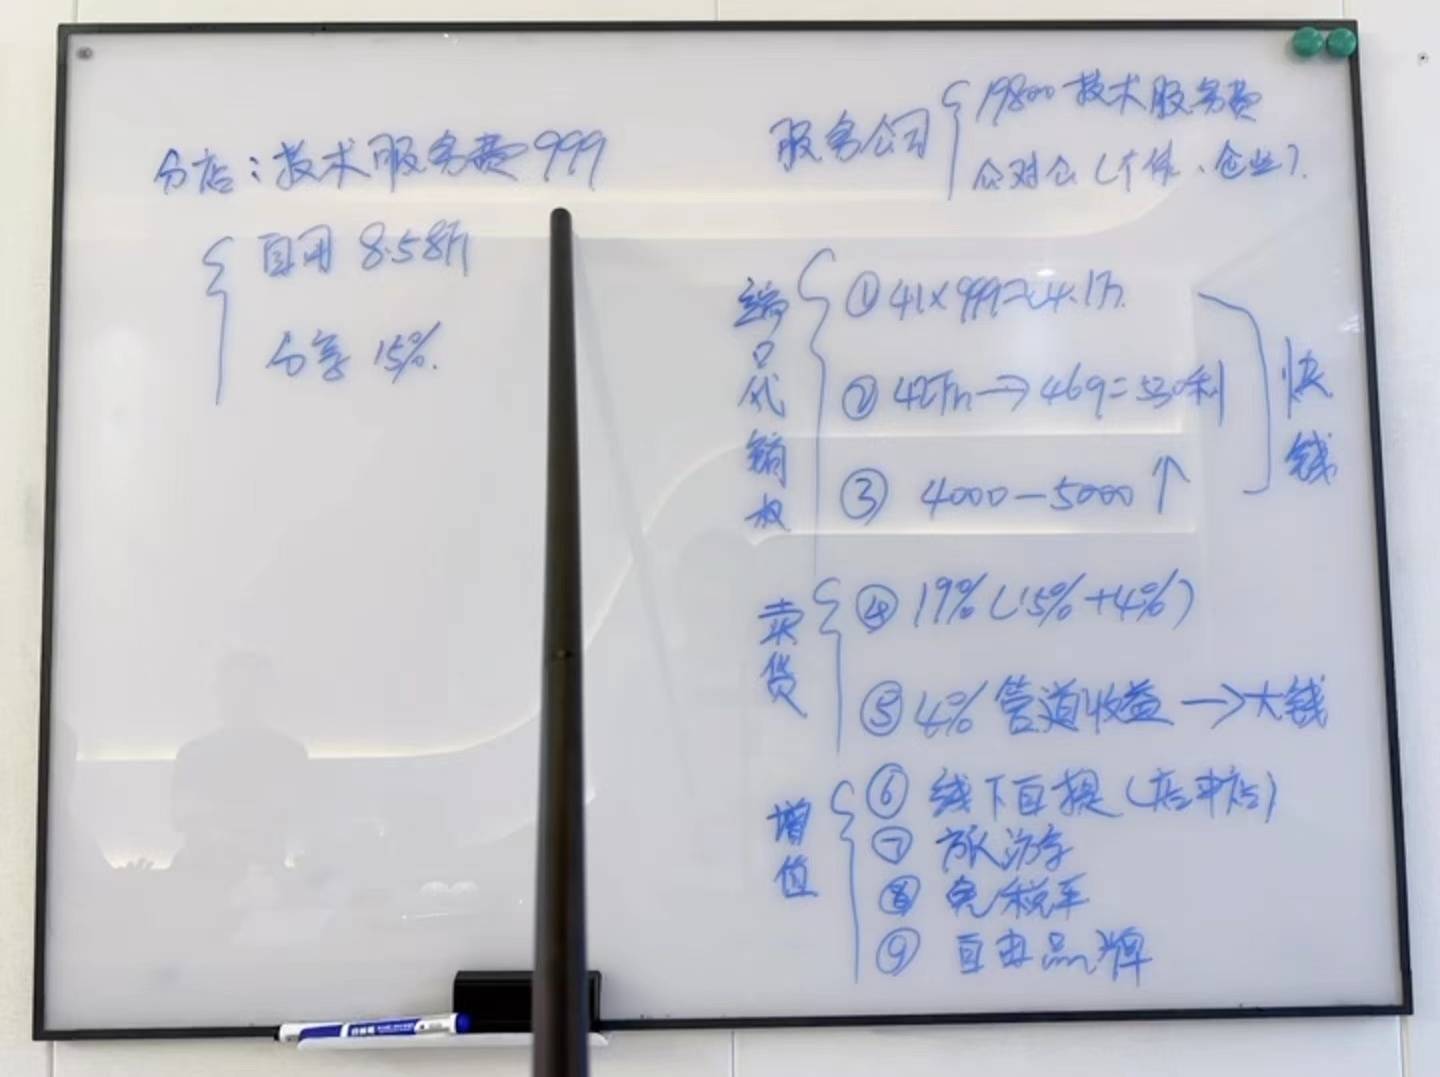 分店：技术服务费999
自用 8.58折
分享 15%.
服务公司
19800技术服务费
公对公（个体、企业）.
端口代销权
① 41×999≈4.1万.
② 42万→469=530利
③ 4000—5000↑
快钱
卖货
④ 19%（15%+4%）
⑤ 4%管道收益→大钱
增值
⑥ 线下自提（店中店）
⑦ 旅游
⑧ 免税车
⑨ 自由品牌